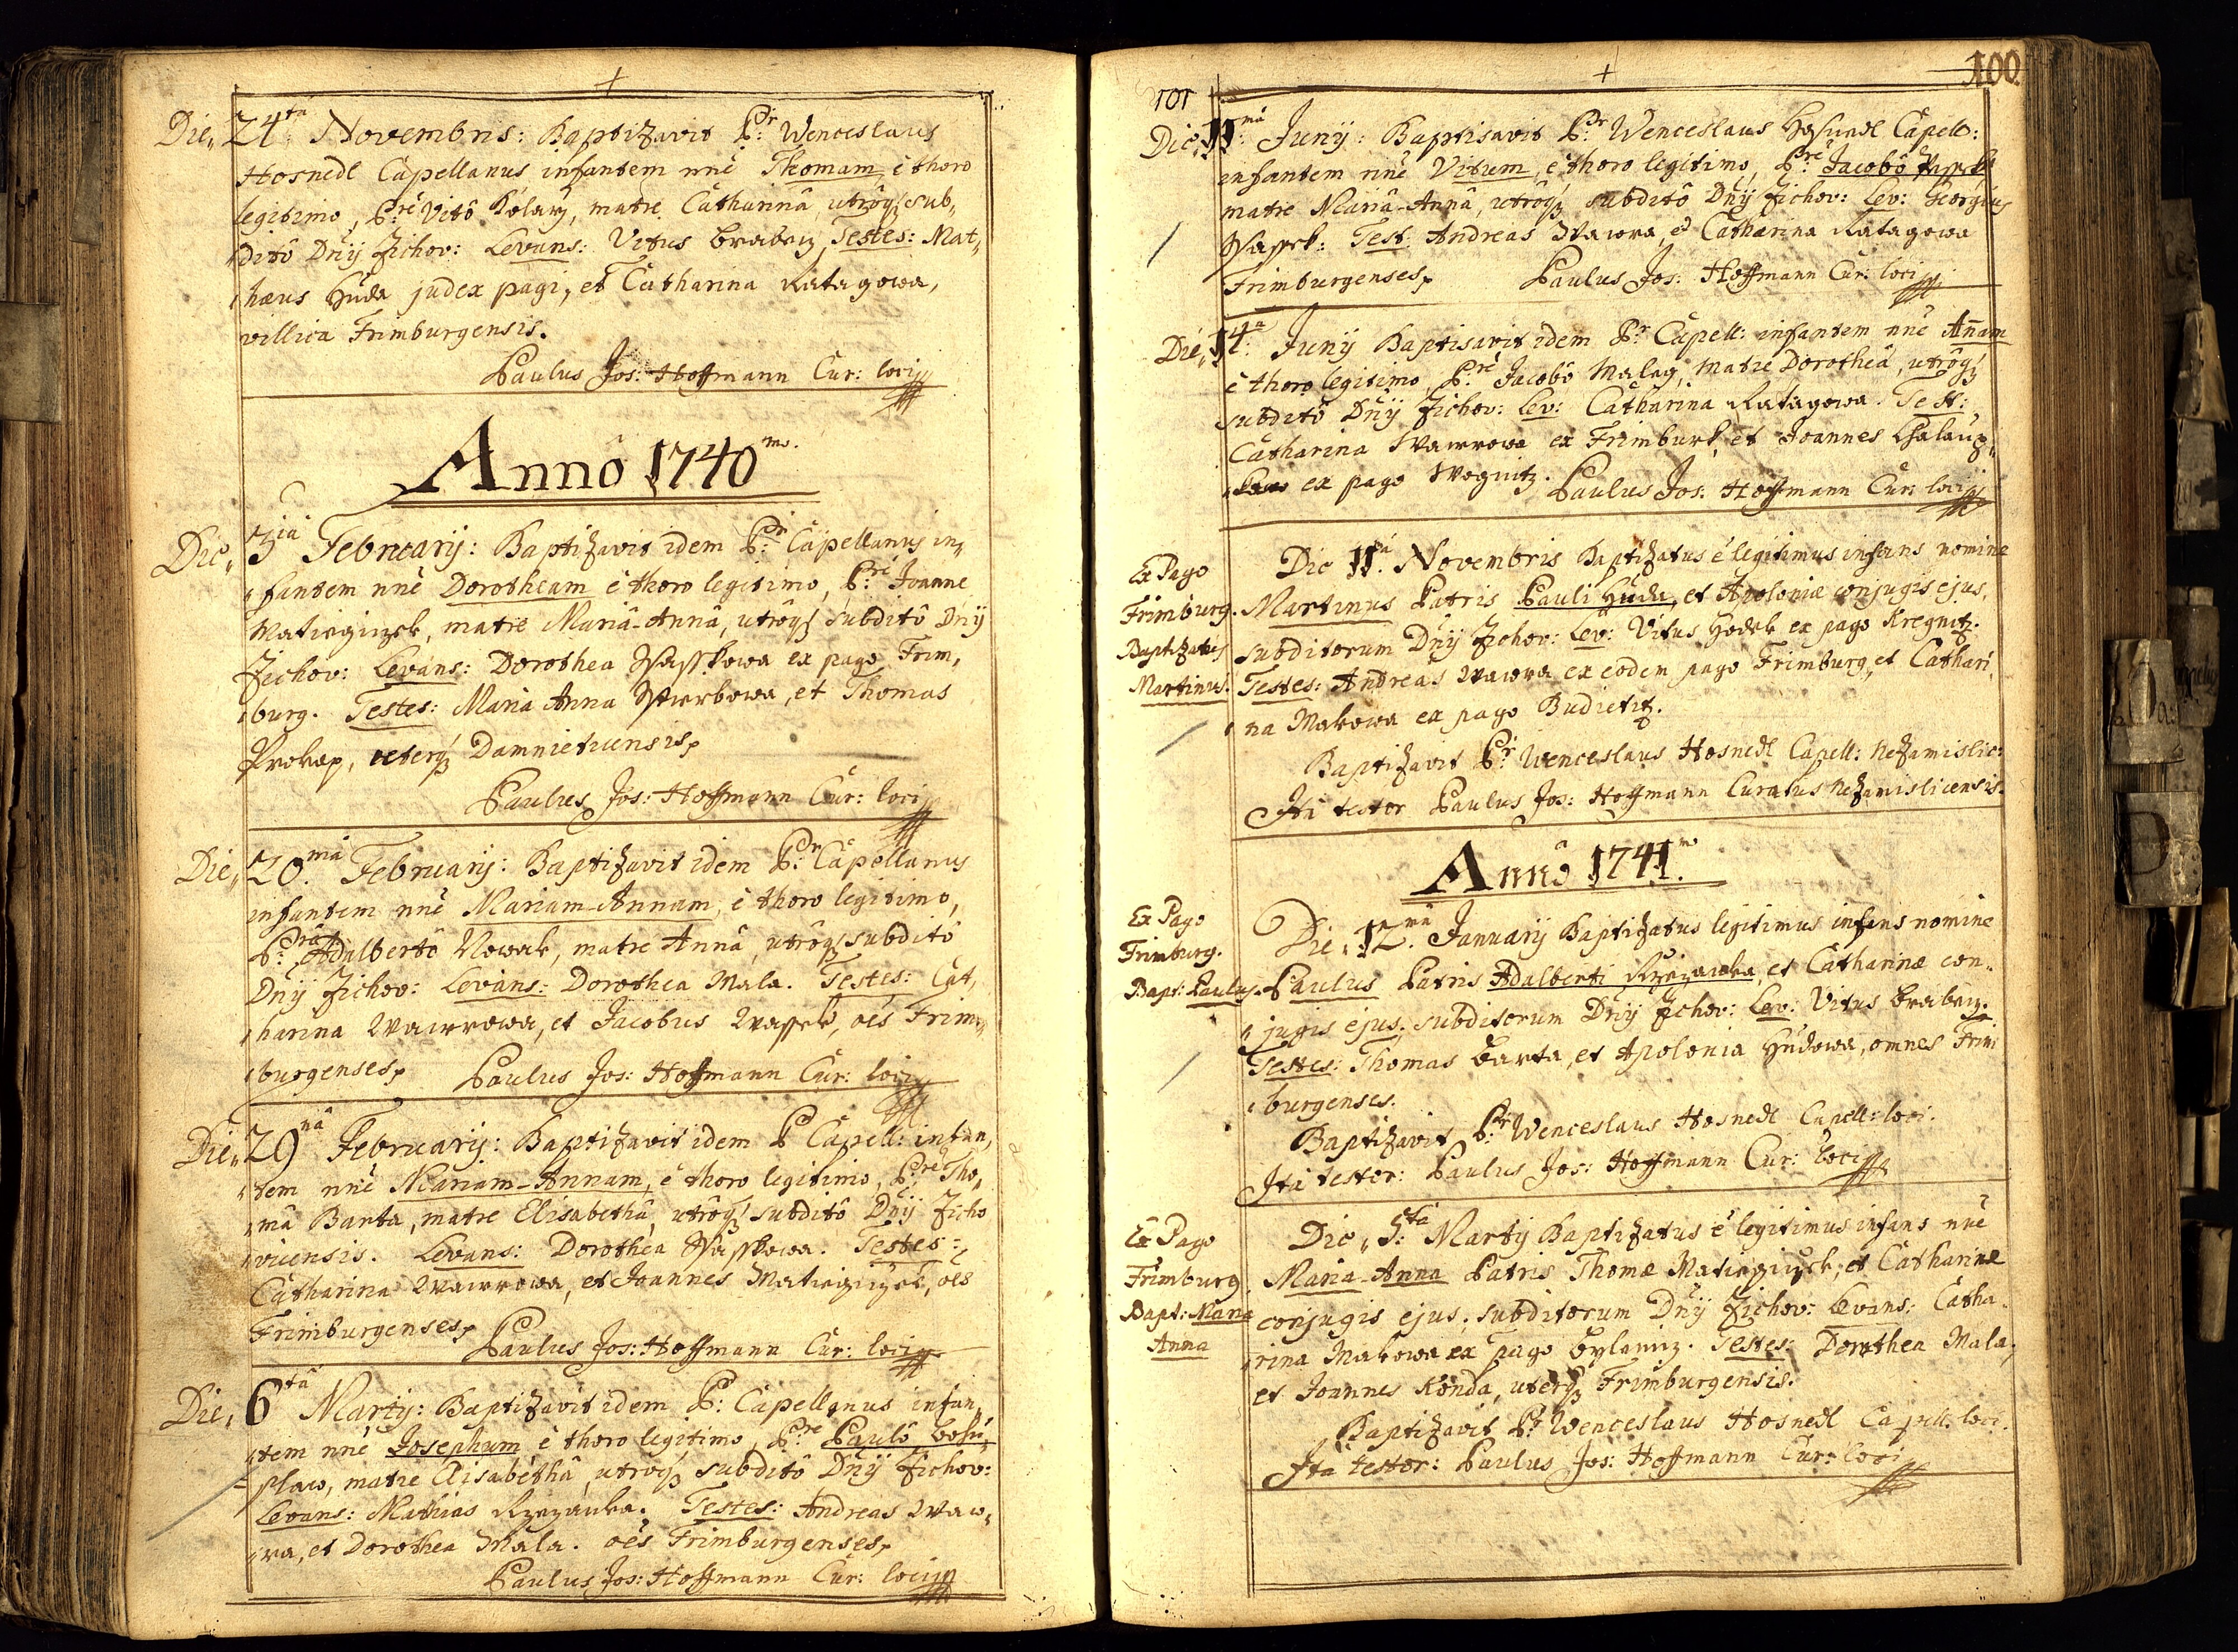 +
Die, 24.ta Novembris: Baptizavit P:r Wenceslaus
Hosnedl Capellanus infantem nnē Thomam, è thoro
legitimo, P:re Vitô Kolarz, matre Catharinâ, utrôq; sub-
ditô Dnij Zichov: Levans: Vitus Brabecz, Testes: Mat-
hæus Huda judex pagi, et Catharina Ratagowa,
villica Frimburgensis.
Paulus Jos: Hoffmann Cur: loci
Annô 1740mo.
Die, 3tia Februarij: Baptizavit idem P:r Capellanus in-
fantem nnē Dorotheam è thoro legitimo, P:re Joanne
Matiegiczek, matre Mariâ-Annâ, utrôq; subditô Dnij
Zichov: Levans: Dorothea Wasskowa ex pago Frim-
burg. Testes: Maria Anna Wawrbowa, et Thomas
Prokop, uterq; Damnieticensis,
Paulus Jos: Hoffmann Cur: loci
Die, 20.ma Februarij: Baptizavit idem P:r Capellanus
infantem nnē Mariam-Annam, è thoro legitimo,
P:re Adalbertô Nowak, matre Annâ, utrôq; subditô
Dnij Zichov: Levans: Dorothea Mala. Testes: Cat-
harina Wawrowa, et Jacobus Wassek, oēs Frim-
burgenses, Paulus Jos: Hoffmann Cur: loci
Die, 29na Februarij: Baptizavit idem P Capell: infan-
tem nnē Mariam-Annam, è thoro legitimo, P:re Tho-
mâ Barta, matre Elisabethâ, utrôq; subditô Dnij Zicho
vicensis. Levans: Dorothea Wasskowa. Testes:
Catharina Wawrowa, et Joannes Matiegiczek, oēs
Frimburgenses, Paulus Jos: Hoffmann Cur: loci
Die, 6ta Martij: Baptizavit idem P: Capellanus infan-
tem nnē Josephum è thoro legitimo, P:re Paulô Bohu-
slaw, matre Elisabethâ, utrôq; subditô Dnij Zichov:
Levans: Mathias Rzezanka. Testes: Andreas Waw-
ra, et Dorothea Mala. oēs Frimburgenses,
Paulus Jos: Hoffmann Cur: loci
+
100
101
Die, 11.ma Junij: Baptisavit P:r Wenceslaus Hosnedl Capell:
infantem nnē Vitum, è thoro legitimo, P:re Jacobô Wassek
matre Mariâ-Annâ, utrôq; subditô Dnij Zichov: Lev: Georgius
Wassek: Test: Andreas Wawra, et Catharina Ratagowa
Frimburgenses, Paulus Jos: Hoffmann Cur: loci
Die, 14.a Junij Baptisavit idem P:r Capell: infantem nnē Annam
è thoro legitimo, P:re Jacobô Maleg, matre Dorotheâ, utrôq;
subditô Dnij Zichov: Lev: Catharina Ratagowa. Test:
Catharina Wawrowa ex Frimburk, et Joannes Chalaup-
ex pago Wognitz. Paulus Jos: Hoffmann Cur: loci
Ex Pago
Frimburg.
Baptizatus
Martinus.
Die 11.a Novembris Baptizatus è legitimus infans nomine
Martinus Patris Pauli Huda, et Apoloniæ conjugis ejus,
subditorum Dnij Zichov: Lev: Vitus Hodek ex pago Kregnitz.
Testes: Andreas Wawra ex eodem pago Frimburg, et Cathari
na Makowa ex pago Budietitz.
Baptizavit P:r Wenceslaus Hosnedl Capell: Nezamislic:
Ita testor Paulus Jos: Hoffmann Curatus Nezamislicensis.
Annô 1741.mo
Ex Pago
Frimburg.
Bapt: Paulus.
Die, 12.ma Januarij Baptizatus legitimus infans nomine
Paulus Patris Adalberti Rzezanka, et Catharinæ con-
jugis ejus, subditorum Dnij Zichov: Lev: Vitus Brabecz.
Testes: Thomas Barta, et Apolonia Hudowa, omnes Frim
burgenses.
Baptizavit P:r Wenceslaus Hosnedl Capell: loci.
Ita testor: Paulus Jos: Hoffmann Cur: loci
Ex Pago
Frimburg
Bapt: Maria
Anna
Die, 5.ta Martij Baptizatus è legitimus infans nnē
Maria-Anna Patris Thomæ Matiegiczek, et Catharinæ
conjugis ejus, subditorum Dnij Zichov: Levans: Catha-
rina Makowa ex Pago Bylenicz. Testes: Dorothea Mala,
et Joannes Konda, uterq; Frimburgensis.
Baptizavit P:r Wenceslaus Hosnedl Capell: loci.
Ita testor: Paulus Jos: Hoffmann Cur: loci